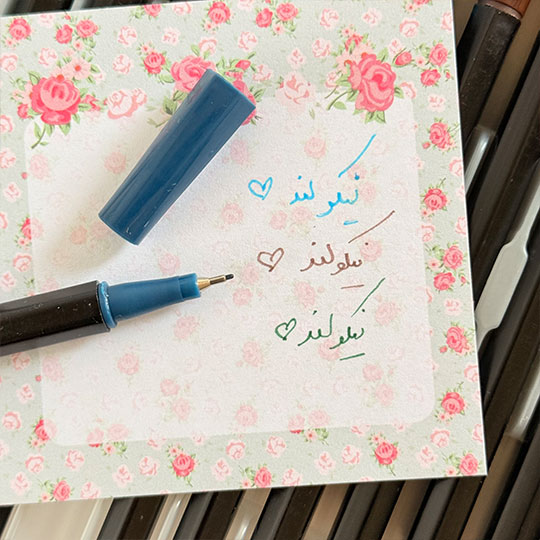 نیکولند
نیکولند
نیکولند